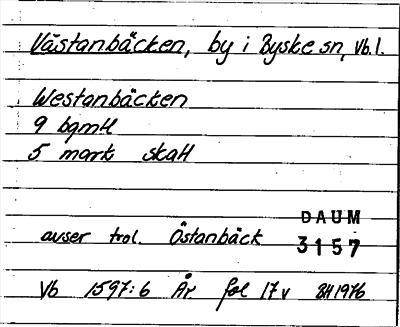 Västanbäcken, by i Byske sn, Vb.l.
Westanbäcken
9 bgmH
5 mark skatt
DAUM
avser trol. Östanbäck
3157
Vb 1597:6 År fol 17v BH 1976